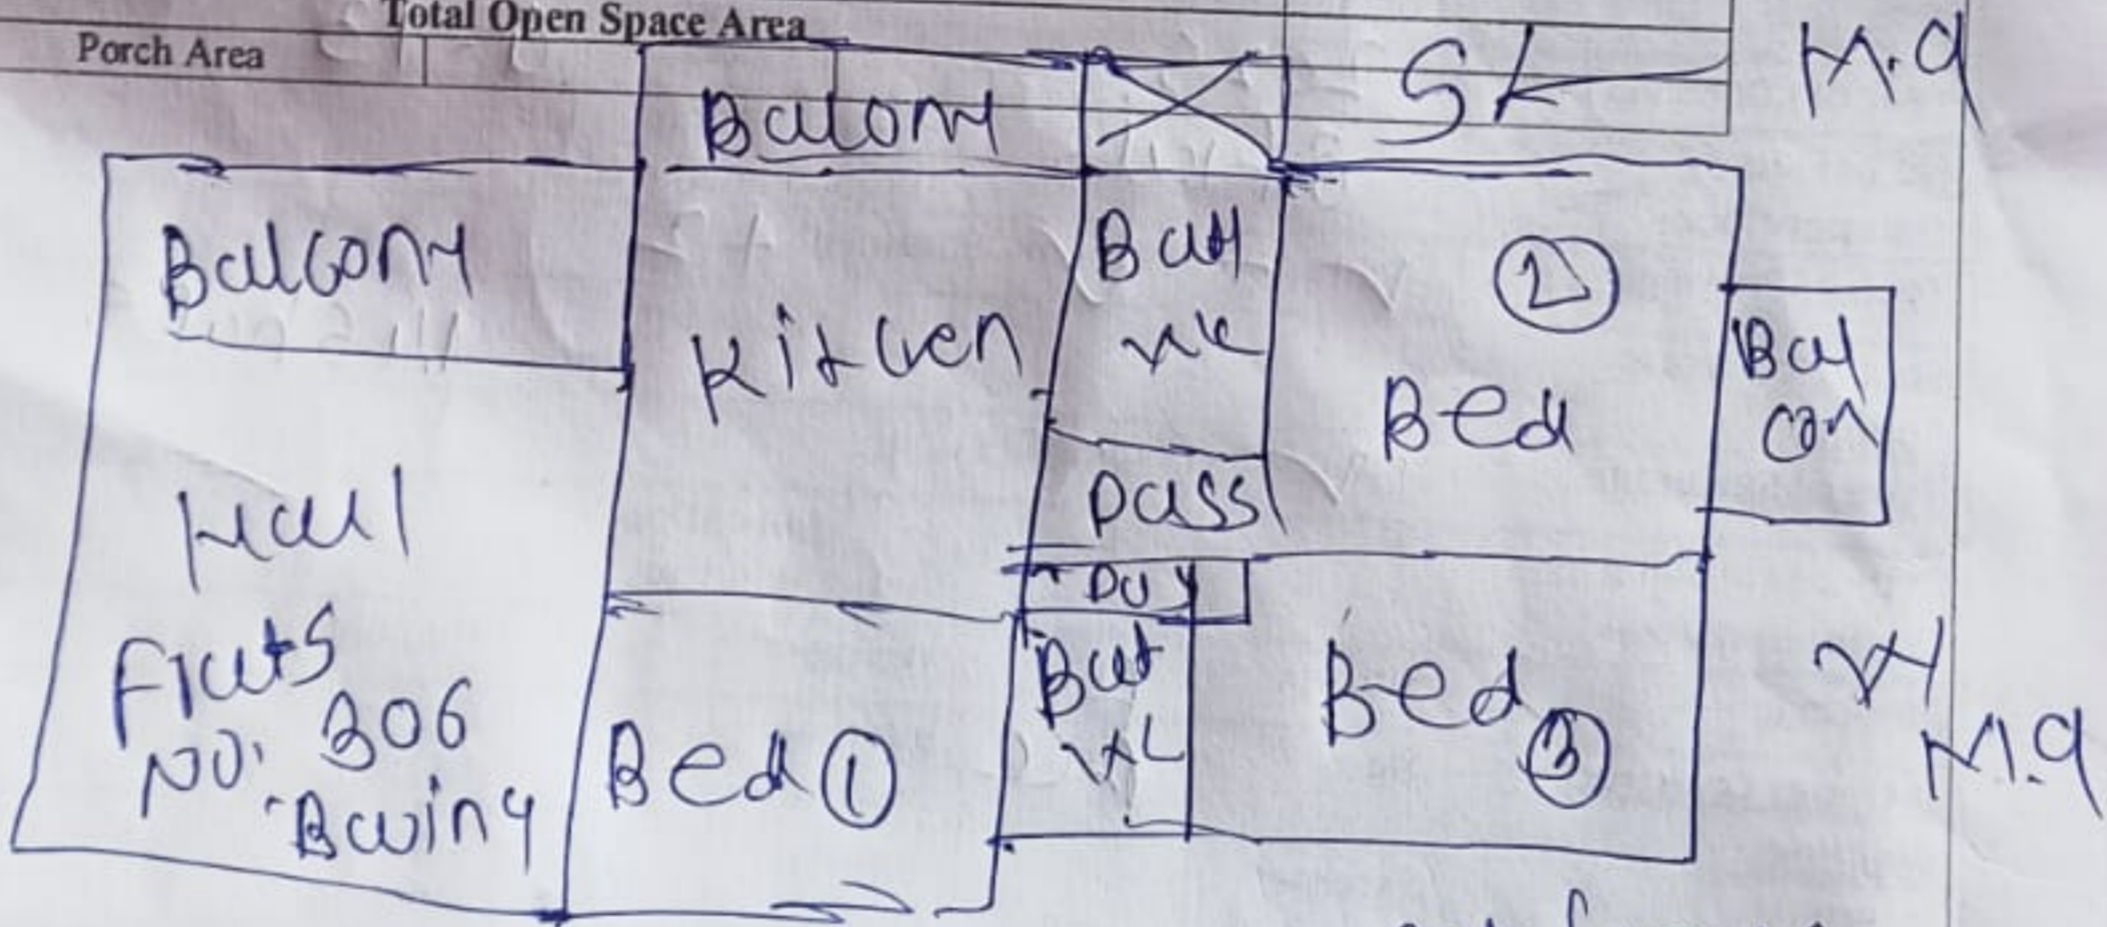 Total Open Space Area
Porch Area
M.q
Balony
Balcony
Kitchen
Bat
②
Bed
Bal
con
pass
Hall
Flats
NO. 306
Bwing
Bed ①
Bat
Bed ③
M.q